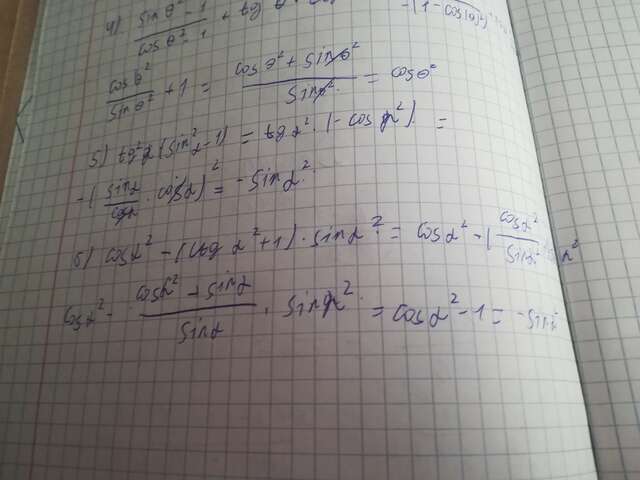 4) \frac{sin θ² - 1}{cos θ² - 1} + tg θ
-(1 - cos(θ)²)
\frac{cos θ²}{sin θ²} + 1 = \frac{cos θ² + sin θ²}{sin θ²} = cos θ²
5) tg²α (sin²α - 1) = tg α² · (- cos α²) =
- (\frac{sin α}{cos α} · cos α)² = - sin α²
6) cos α² - (ctg α² + 1) · sin α² = cos α² - (\frac{cos α²}{sin α²}
cos α² - \frac{cos α² + sin α}{sin α} · sin α² = cos α² - 1 = - sin